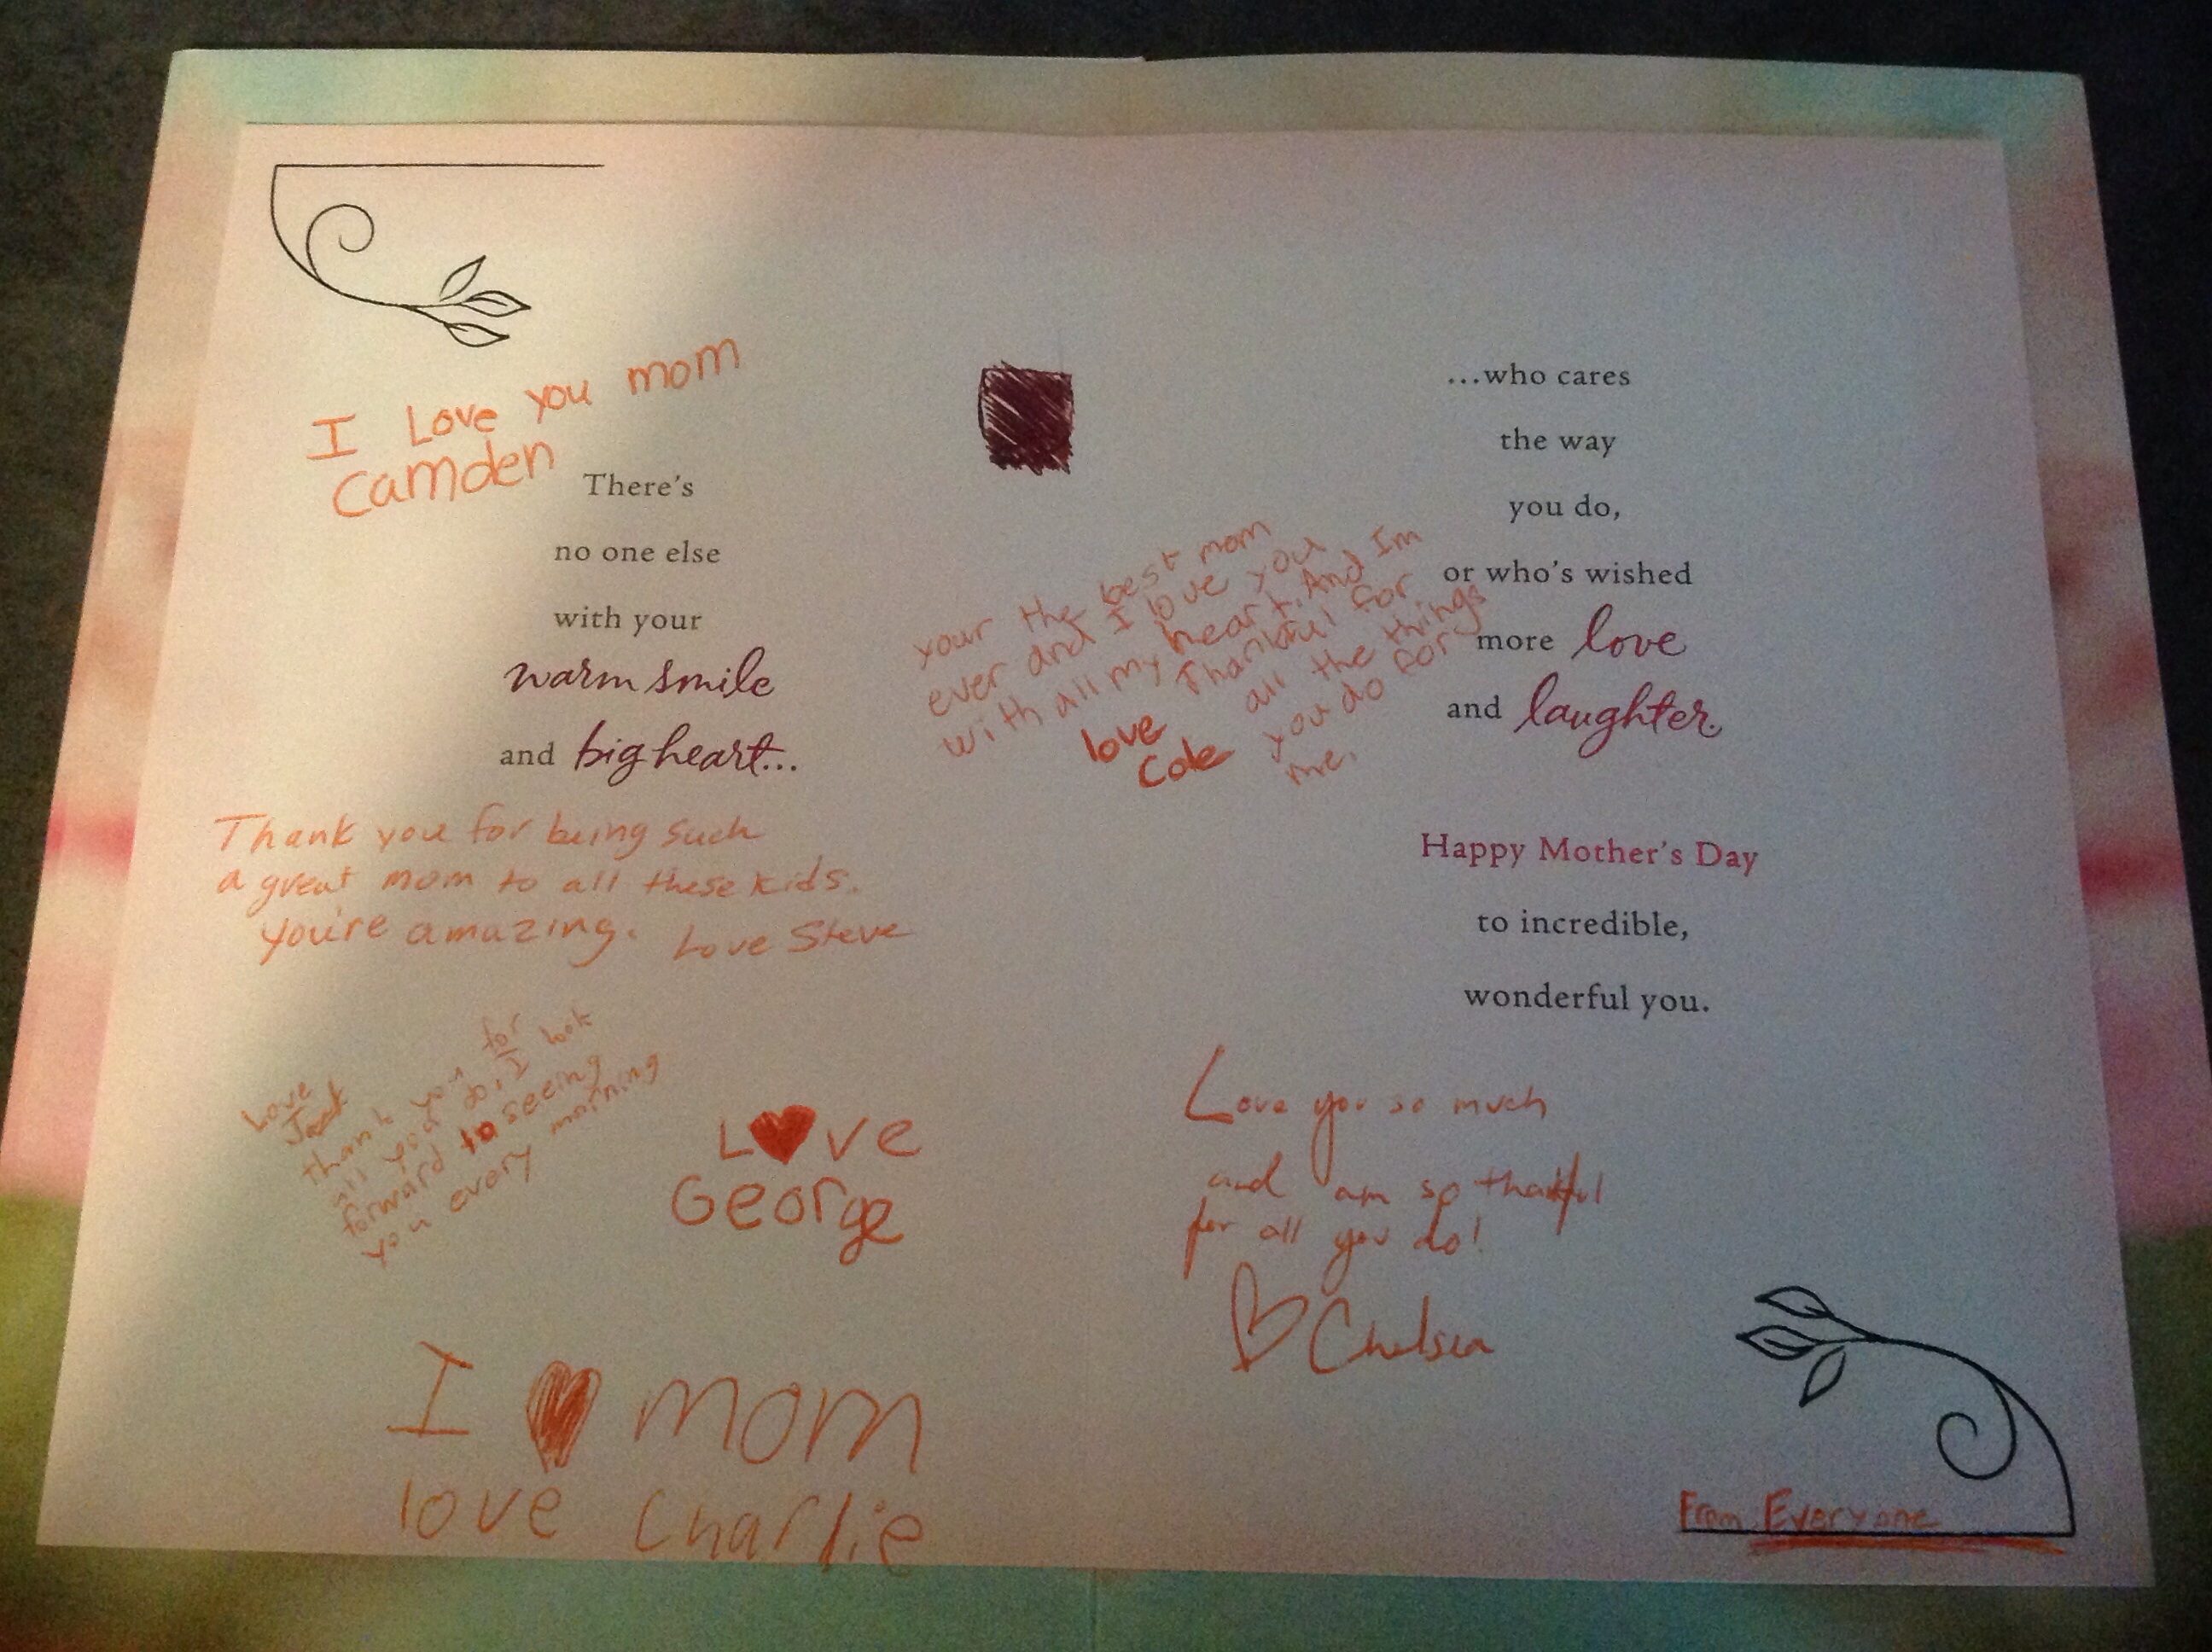 I Love you mom
Camden
There's
no one else
with your
warm smile
and big heart...
Thank you for being such
a great mom to all these kids.
you're amazing. Love Steve
Love
Jack
thank you for
all you do, I look
forward to seeing
you every morning
L♥ve
George
I ♥ mom
love Charlie
your the best mom
ever and I love you
with all my heart. And Im
Thankful for
all the things
you do for
me.
love
Cole
...who cares
the way
you do,
or who's wished
more love
and laughter.
Happy Mother's Day
to incredible,
wonderful you.
Love you so much
and am so thankful
for all you do!
♡ Chelsea
From Everyone